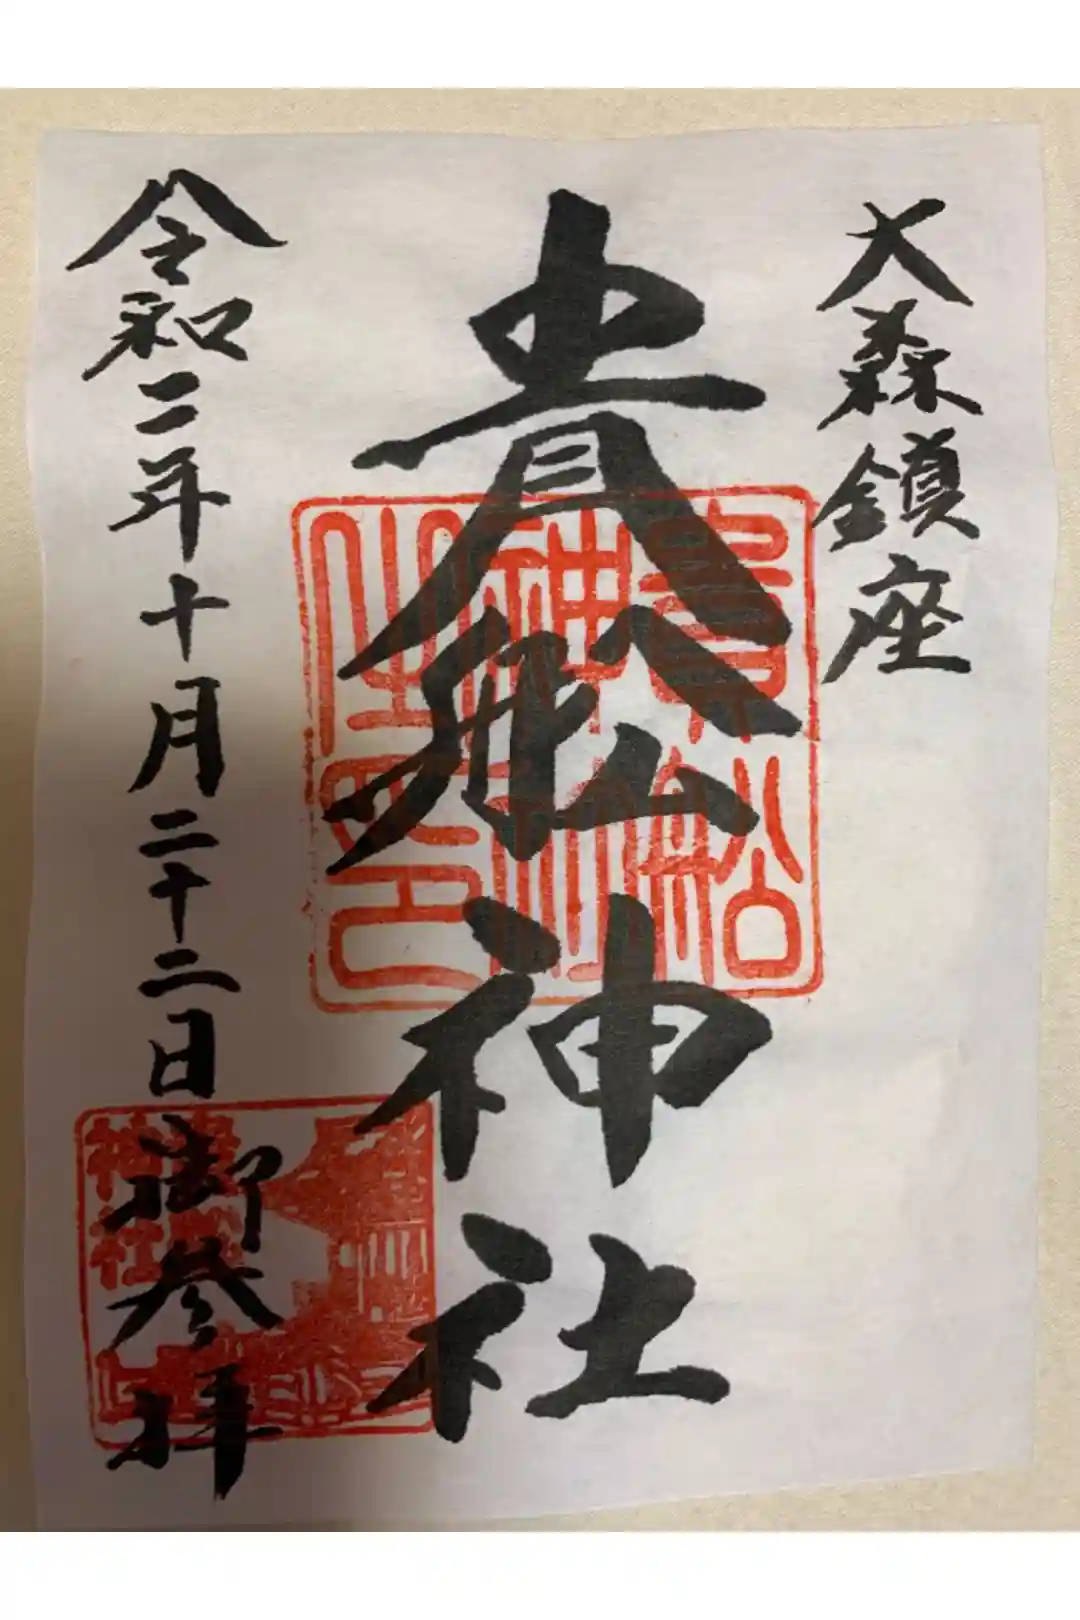 大森鎮座
貴舩神社
令和二年十月二十二日御参拝
貴舩
神社
之印